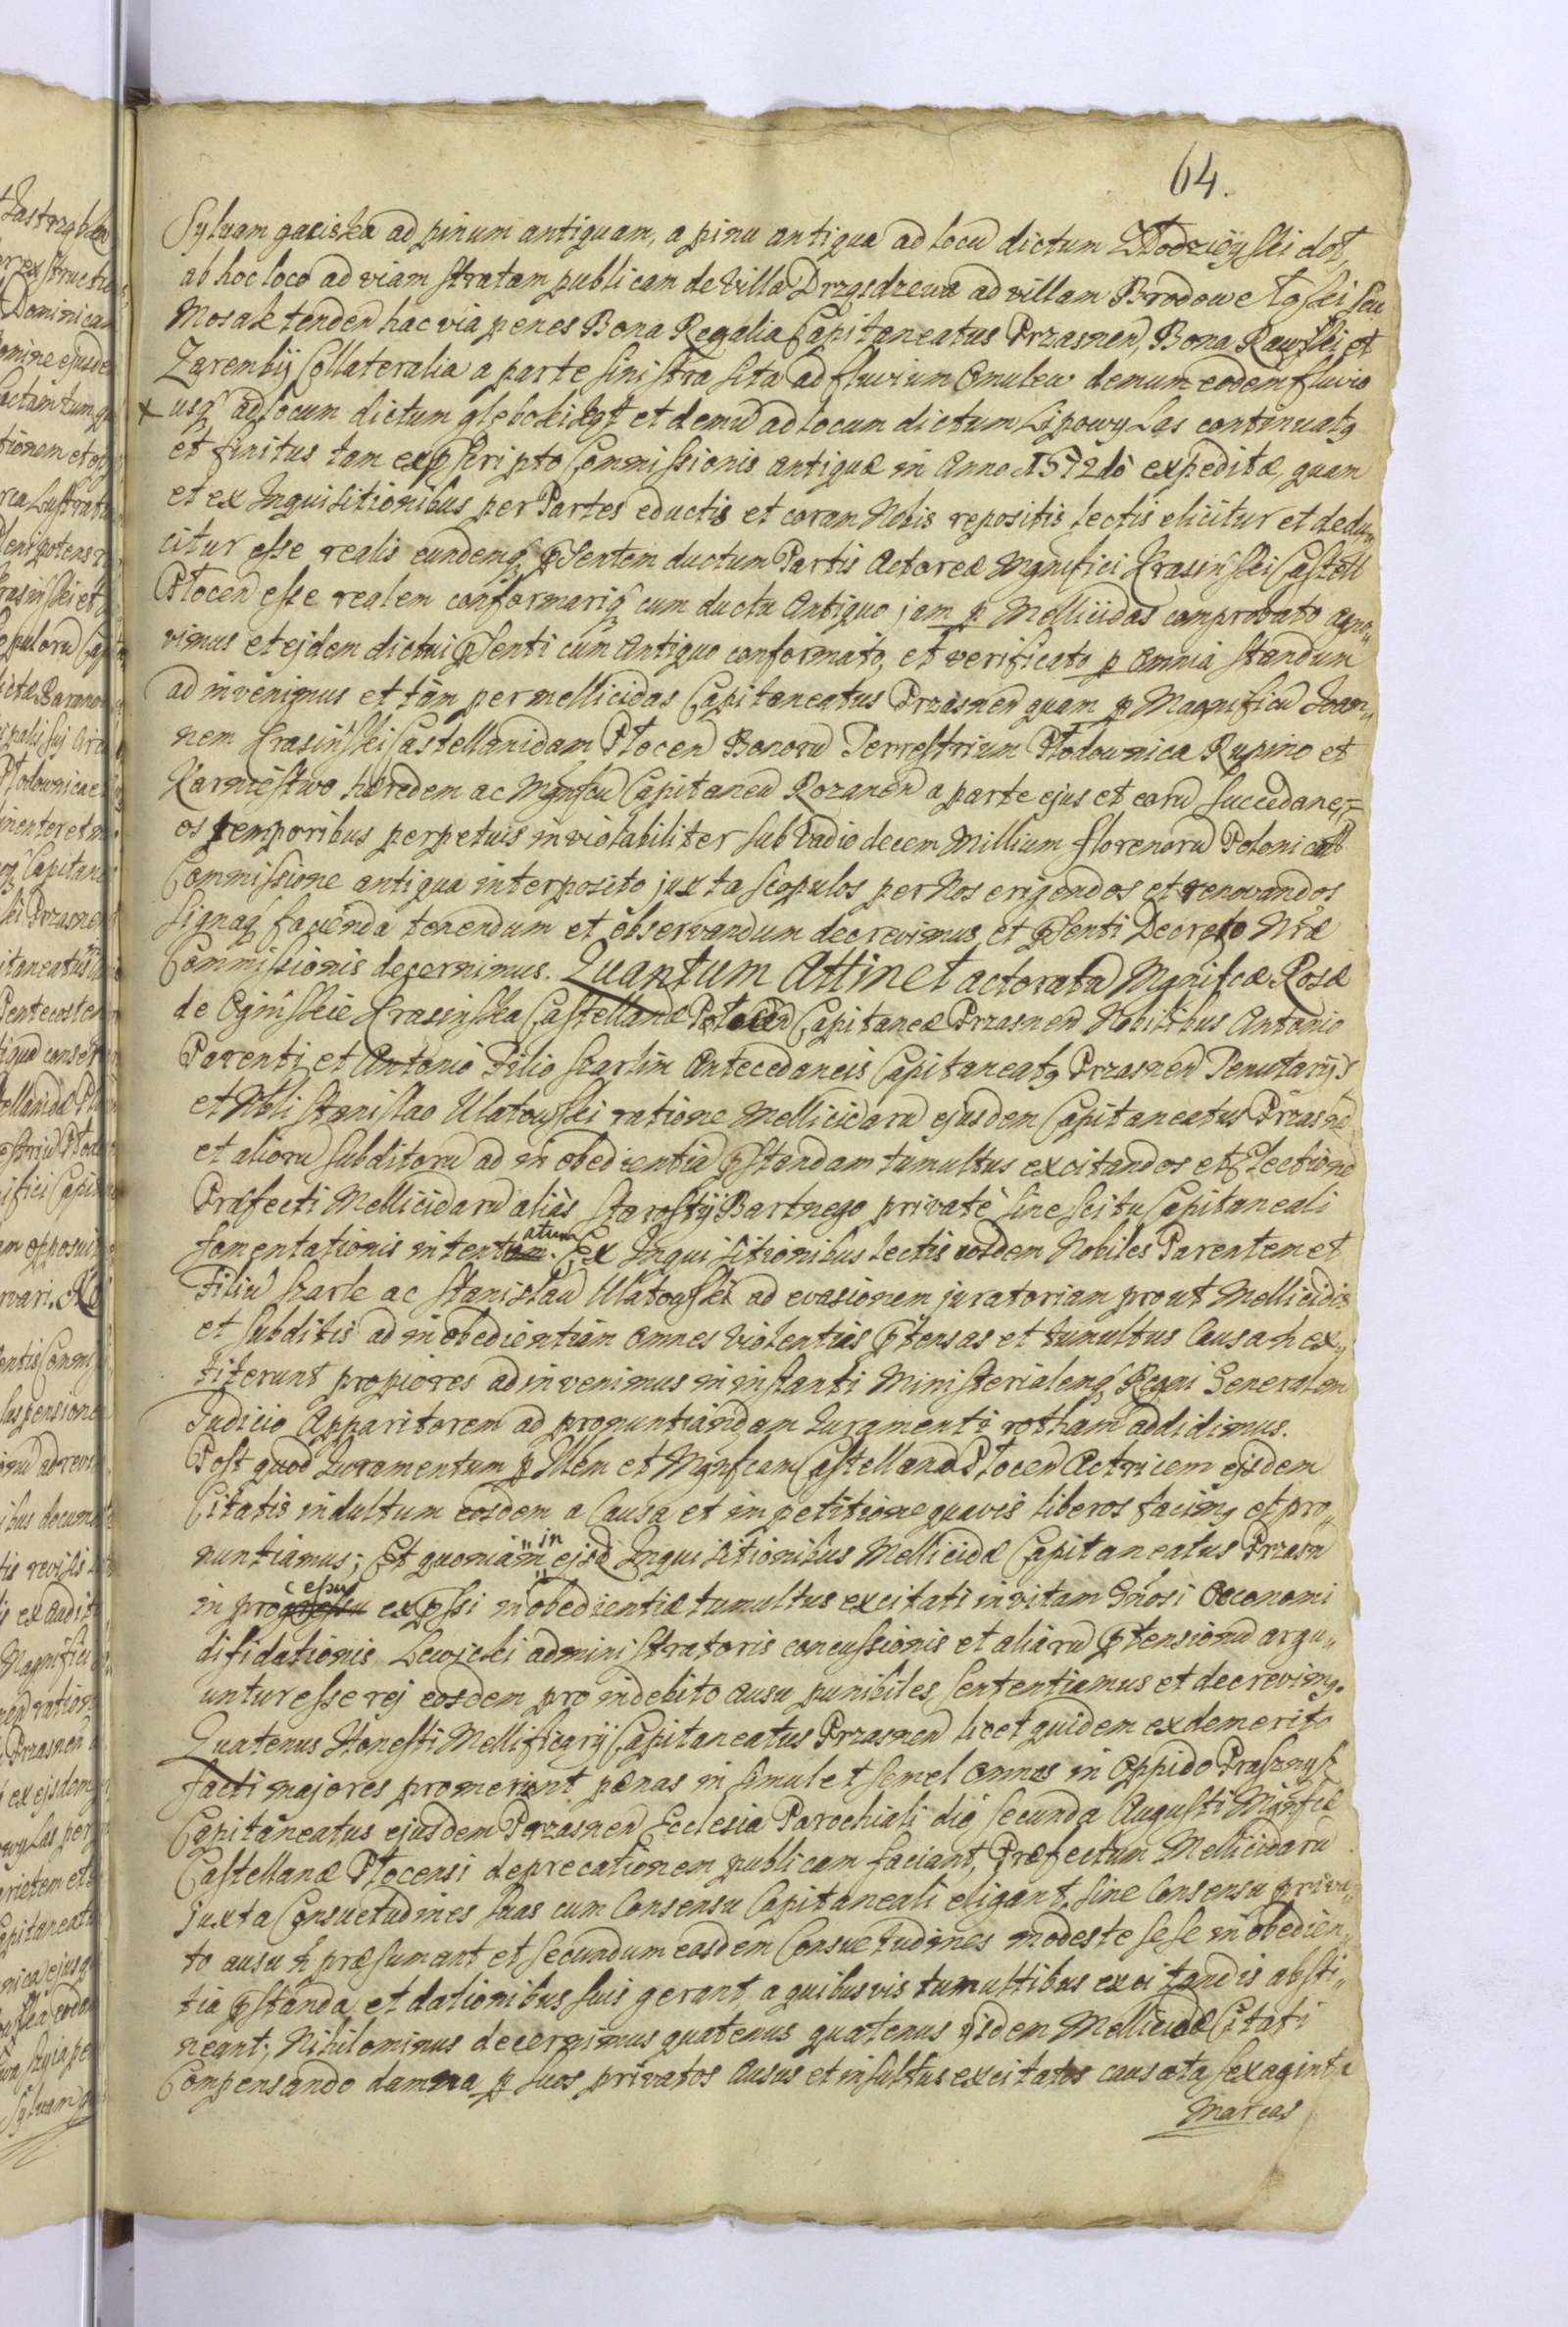 64.
Sylvam gaciska ad pinum antiquam, a pinu antiqua ad locũ dictum Złodziÿski doł,
ab hoc loco ad viam stratam publicam de Villa Drzęsdzewa ad villam Brodowe Łąski seu
Mosak tendeñ hac via penes Bona Regalia Capitaneatus Przasneñ, Bona Rawski et
Zarembÿ Collateralia a parte sinistra sita ad fluvium Omulew demum eodem fluvio
x usq̃ ad locum dictum głęboki kąt et demũ ad locum dictum Lipowy Las continuatg
et finitus tam ex p̃scripto Commissionis antiquæ in Anno 1572do expeditæ, quam
et ex Inquisitionibus per Partes eductis et coram Nobis repositis lectis elicitur et dedu„
citur esse realis eundemq̃ p̃sentem ductum Partis Actoreæ Mgnifici Krasinski Castell
Płoceñ esse realem conformariq̃ cum ductu Antiquo jam p Mellicidas comprobato agno„
vimus et ejdem dictui p̃senti cum Antiquo conformato, et verificato p omnia standum
ad invenimus et tàm per mellicidas Capitaneatus Przasneñ quam p Magnificũ Joan„
nem Krasinski Castellanidam Płoceñ Bonorũ Terrestrium Płodownica Rupino et
Karniéstwo hæredem ac Mgnfcũ Capitaneũ Rozaneñ a parte ejus et eorũ succedane„
os temporibus perpetuis inviolabiliter sub Vadio decem Millium florenorũ Polonical
Commissione antiqua interposito juxta scopulos per Nos erigendos et renovandos
signaq̃ facienda tenendum et observandum decrevimus, et p̃senti Decreto Nr̃æ
Commissionis decernimus. Quantum Attinet actoratũ Mgnifcæ Rosæ
de Oginskie Krasinska Castellanæ Płoceñ Capitaneæ Przasneñ Nobilibus Antonio
Parenti et Antonio Filio Szarlin Antecedaneis Capitaneatg Przasneñ Tenutarÿs
et Nbli Stanislao Ulatowski ratione Mellicidarũ ejusdem Capitaneatus Przasñe
et aliorũ subditorũ ad in obedientiã p̃standam tumultus excitandos et Electione
Præfecti Mellicidarũ aliàs Starostÿ Bartnego privatè sine scitu Capitaneali
fomentationis intentatum. Ex Inquisitionibus lectis eosdem Nobiles Parentem et
Filiũ Szarle ac Stanislaũ Ulatowski ad evasionem juratoriam prout Mellicidis
et subditis ad in obedientiam omnes violentias p̃tensas et tumultus Causa ñ ex„
titerunt propiores adinvenimus in instanti Ministerialemq̃ Regni Generalem
Judicio Apparitorem ad pronuntiandam Juramenti rotham addidimus.
Post quod Juramentum p Illm̃ et Mgnfcam Castellanã Płoceñ Actricem ejsdem
Citatis indultum eosdem a Causa et impetitione quavis liberos facimg et pro„
nuntiamus; Et quoniam in ejsd Inquisitionibus Mellicidæ Capitaneatus Przasñ
in processu exp̃ssi inobedientiæ tumultus excitati in vitam Gñosi Oeconomi
difidationis Lewicki administratoris concussionis et aliarũ p̃tensionũ argu„
untur esse rej eosdem pro indebito ausu punibiles, Sententiamus et decrevimg.
Quatenus Honesti Mellificarÿ Capitaneatus Przasneñ licet quidem ex demerito
facti majores promeriant pænas in simul et semel omnes in Oppido Prasznysz
Capitaneatus ejusdem Przasneñ Ecclesia Parochiali diẽ secunda Augusti Mgnfcæ
Castellanæ Płocensi deprecationem publicam faciant, Præfectum Mellicidarũ
juxta Consuetudines suas cum Consensu Capitaneali eligant, sine Consensu priva„
to ausu ñ præsumant et secundum easdem Consuetudines modeste sese in obedien„
tia p̃standa, et dationibus suis gerant, a quibusvis tumultibus excitandis absti„
neant; Nihilominus decernimus quatenus quatenus ÿsdem Mellicidæ Citati
Compensando damna p suos privatos ausus et insultus excitatos causata sexaginta
Marcas